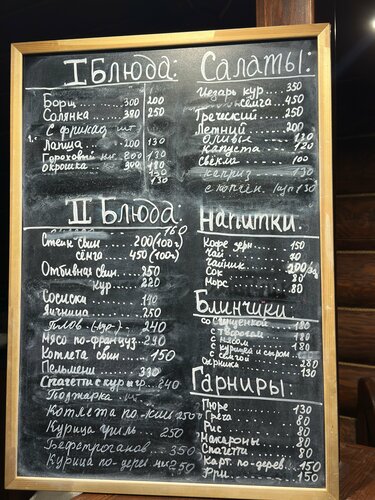 I Блюда:
Борщ 300 200
Солянка 380 250
С фрикад
Лапша 200 130
Гороховый 200 130
Окрошка
130
II Блюда:
160
Стейк свин 200 (100г)
сёмга 450 (100г)
Отбивная свин. 250
кур 220
Сосиски
Яичница 250
Плов 240
Мясо по-француз. 290
Котлета свин 150
Пельмени 330
Спагетти с кур 240
Поджарка
Котлета по-киев 250
Курица гриль 250
Бефстроганов 350
Курица по-дерев 250
Салаты:
Цезарь кур 350
сёмга 450
Греческий 250
Летний 200
Оливье 120
Капуста 120
Свёкла 100
каприз 130
с копчен. 130
Напитки.
Кофе зерн 150
Чай 70
Чайник 200
Сок 80
Морс 80
Блинчики:
со сгущенкой 180
с творогом 180
с мясом 180
с курицей и сыром 180
с сёмгой 280
Сырника 130
Гарниры:
Пюре 130
Греча 80
Рис 80
Макароны 80
Спагетти 80
Карт. по-дерев. 150
Фри 150